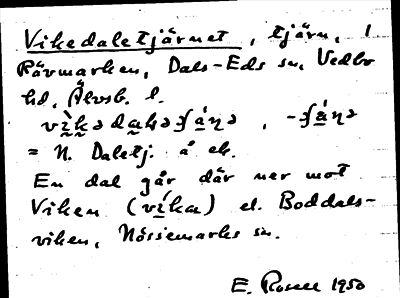 Vikedaletjärnet, tjärn, i
Rävmarken, Dals-Eds sn, Vedbo
hd, Älvsb. l.
= N. Daletj. å ek.
En dal går där ner mot
Viken (víka) el. Boddals-
viken, Nössemarks sn.
E. Rosell 1950